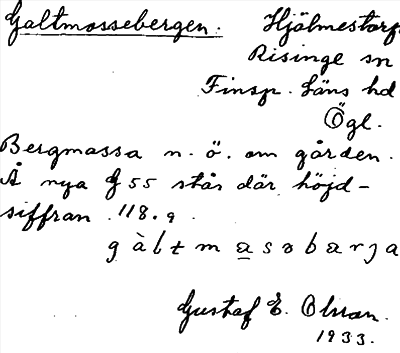 Galtmossebergen. Hjälmestorp
Risinge sn
Finsp. läns hd
Ögl.
Bergmassa n. ö. om gården.
Å nya G 55 står där höjd-
siffran 118.9
gàltmasəbærja
Gustaf E. Olsson.
1933.